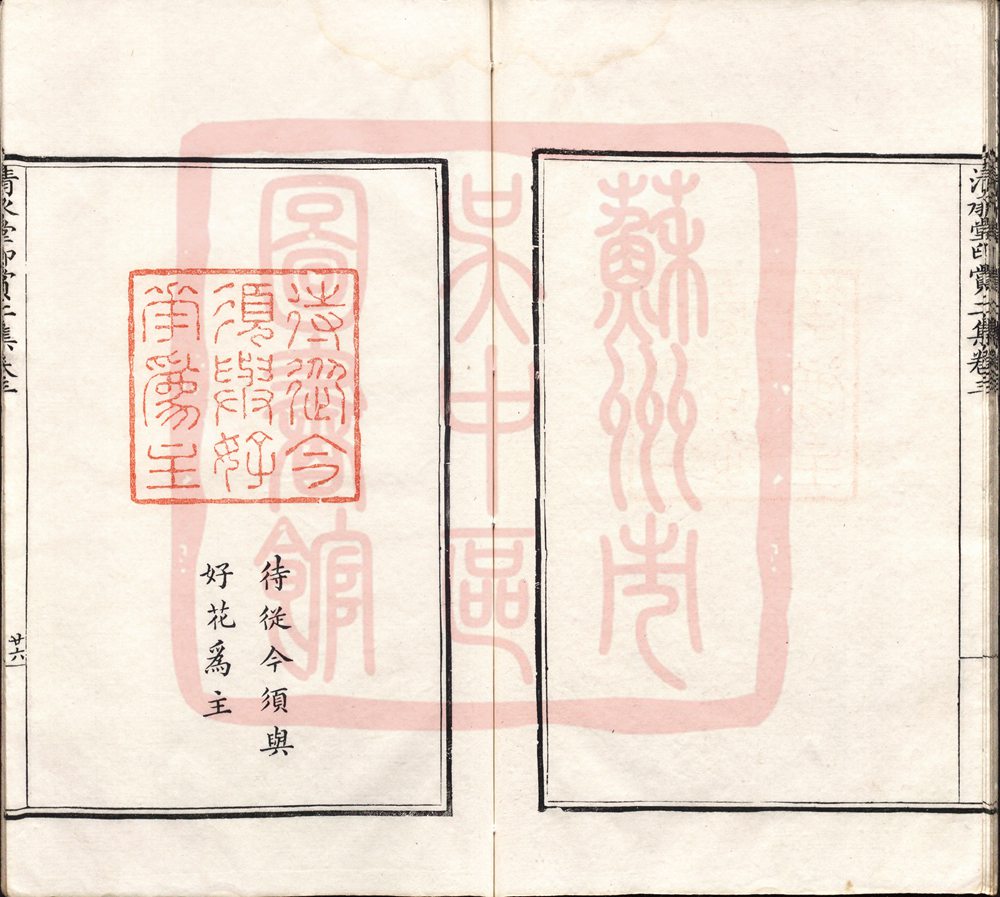 清承堂印賞二集卷三
蘇州市
吳中區
圖書館
待從今
須與好
華爲主
待從今須與
好花爲主
清承堂印賞二集卷三
廿六